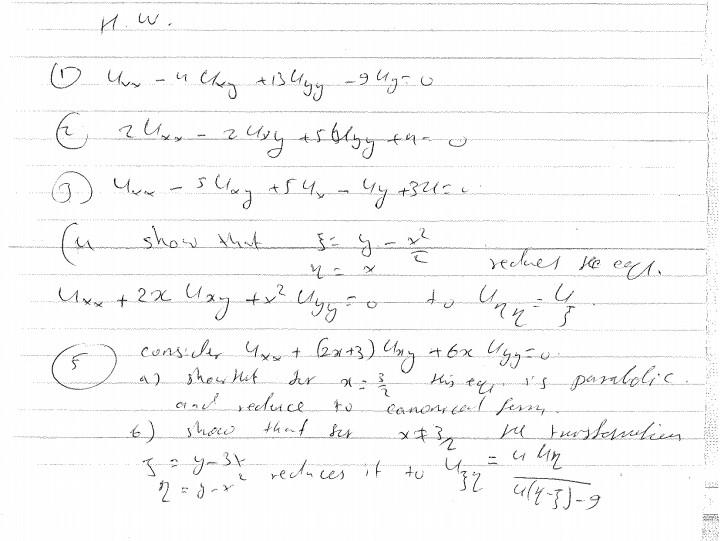 H.W.
① u_xx - 4 u_xy + 13 u_yy - 9 u_y = 0
② 2 u_xx - 2 u_xy + 5 u_yy + u = 0
③ u_xx - 5 u_xy + 5 u_x - u_y + 3u = 0
(4 show that ξ = y - x²/2
η = x reduces the eq.
u_xx + 2x u_xy + x² u_yy = 0 to u_ηη = u_ξ.
⑤ consider u_xx + (2x+3) u_xy + 6x u_yy = 0.
a) show that for x = 3/2 this eq. is parabolic.
and reduce to canonical form.
b) show that for x ≠ 3/2 the transformation
ξ = y - 3x
η = y - x² reduces it to u_ξη = 4 u_η / 4(η-ξ) - 9